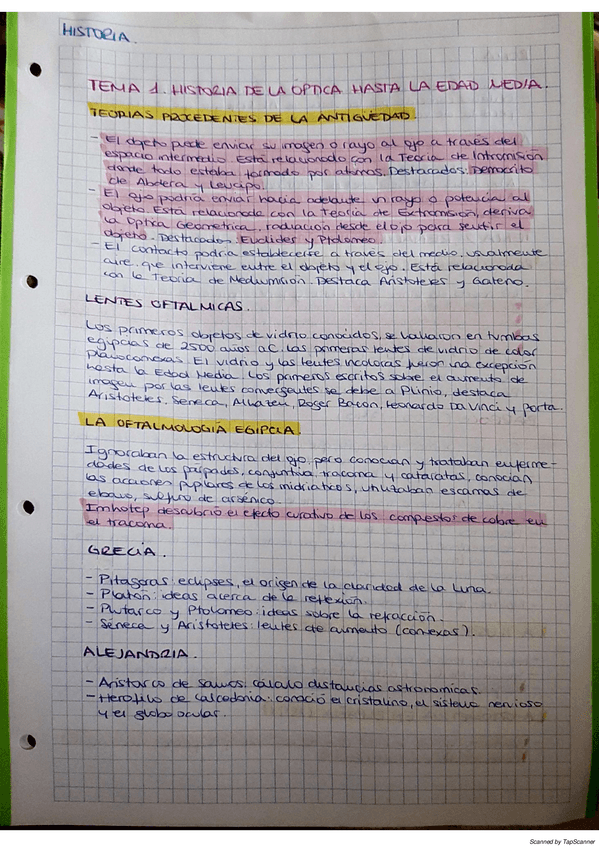 HISTORIA.
TEMA 1. HISTORIA DE LA ÓPTICA HASTA LA EDAD MEDIA.
TEORIAS PROCEDENTES DE LA ANTIGÜEDAD.
- El objeto puede enviar su imagen o rayo al ojo a través del
espacio intermedio. Está relacionado con la Teoría de Intromisión
donde todo estaba formado por atomos. Destacados: Demócrito
de Abdera y Leucipo.
- El ojo podría enviar hacia adelante un rayo o potencia al
objeto. Está relacionado con la Teoría de Extromisión, deriva
la Optica Geometrica, radiación desde el ojo para sentir el
objeto. Destacados: Euclides y Ptolomeo.
- El contacto podría establecerse a través del medio, usualmente
aire, que interviene entre el objeto y el ojo. Está relacionada
con la Teoría de Mediumisión. Destaca Aristoteles y Galeno.
LENTES OFTALMICAS.
Los primeros objetos de vidrio conocidos, se hallaron en tumbas
egipcias de 2500 años a.C. Las primeras lentes de vidrio de color
planoconvexas. El vidrio y las lentes incoloras fueron una excepción
hasta la Edad Media. Los primeros escritos sobre el aumento de
imagen por las lentes convergentes se debe a Plinio, destaca
Aristoteles, Seneca, Alhazen, Roger Bacon, Leonardo Da Vinci y Porta.
LA OFTALMOLOGIA EGIPCIA.
Ignoraban la estructura del ojo, pero conocian y trataban enferme-
dades de los párpados, conjuntiva, tracoma y cataratas, conocían
las acciones pupilares de los midriaticos, utilizaban escamas de
ebano, sulfuro de arsénico.
Imhotep descubrió el efecto curativo de los compuestos de cobre en
el tracoma.
GRECIA.
- Pitagoras: eclipses, el origen de la claridad de la Luna.
- Platón: ideas acerca de la reflexión.
- Plutarco y Ptolomeo: ideas sobre la refracción.
- Séneca y Aristoteles: lentes de aumento (convexas).
ALEJANDRIA.
- Aristarco de Samos: cálculo distancias astronomicas.
- Herofilo de Calcedonia: conoció el cristalino, el sistema nervioso
y el globo ocular.
Scanned by TapScanner